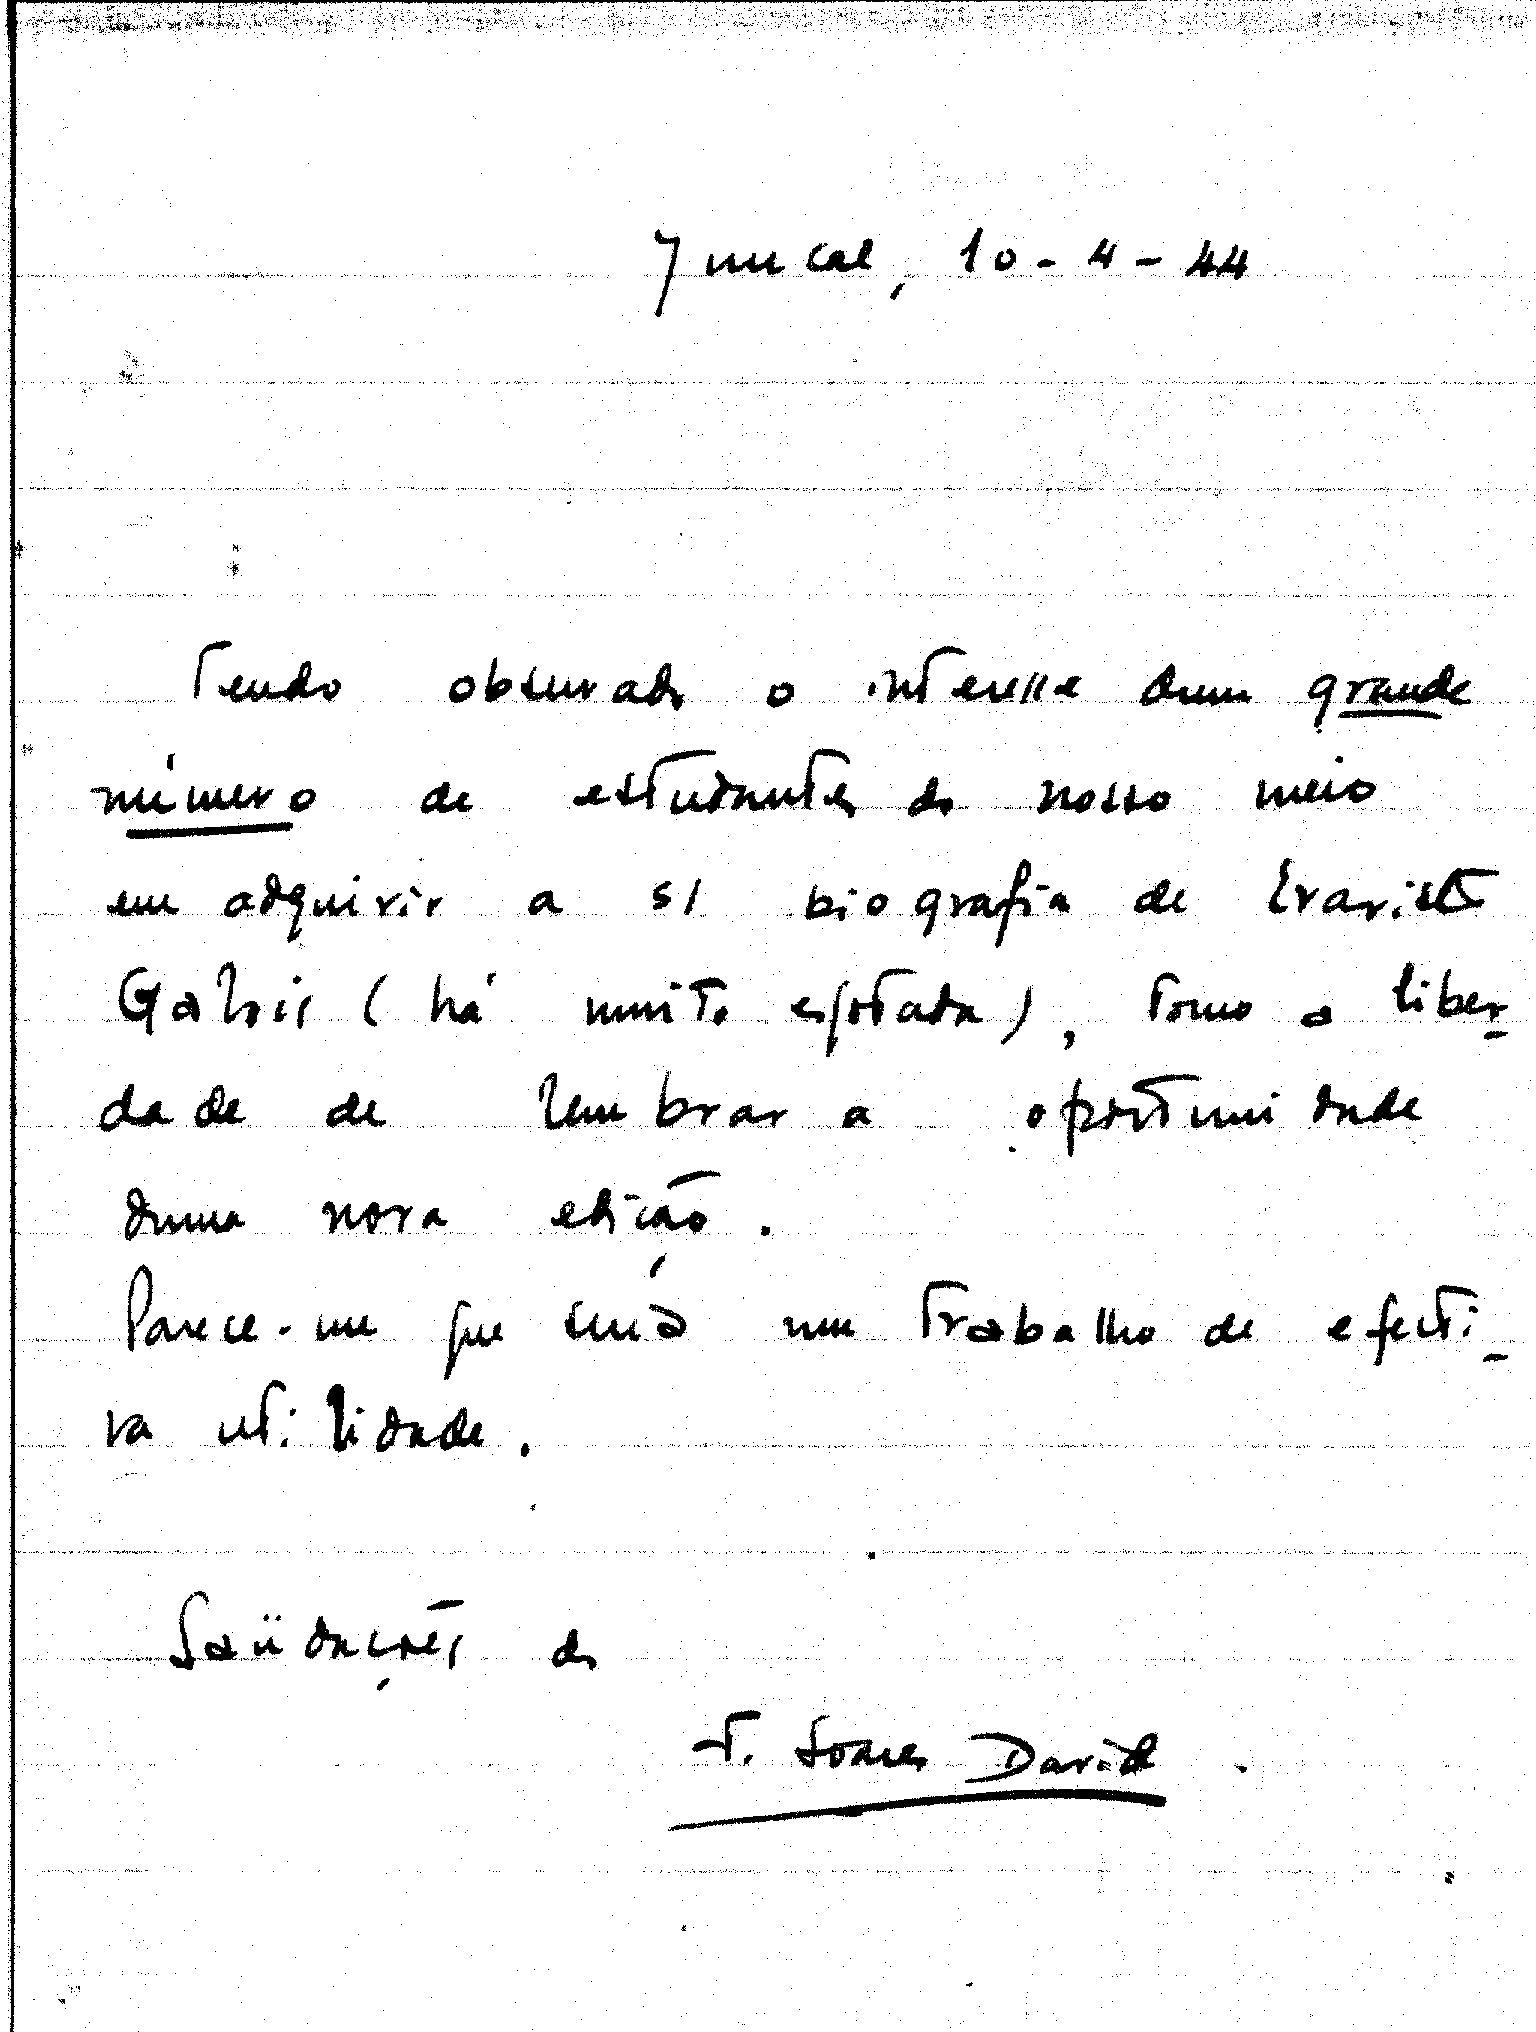 Juncal, 10-4-44
Tendo observado o interesse dum grande
número de estudantes do nosso meio
em adquirir a s/ biografia de Evaristo
Galois (há muito esgotada), tomo a liber-
dade de lembrar a oportunidade
duma nova edição.
Parece-me que será um trabalho de efecti-
va utilidade.
Saüdações do
T. Soares David.